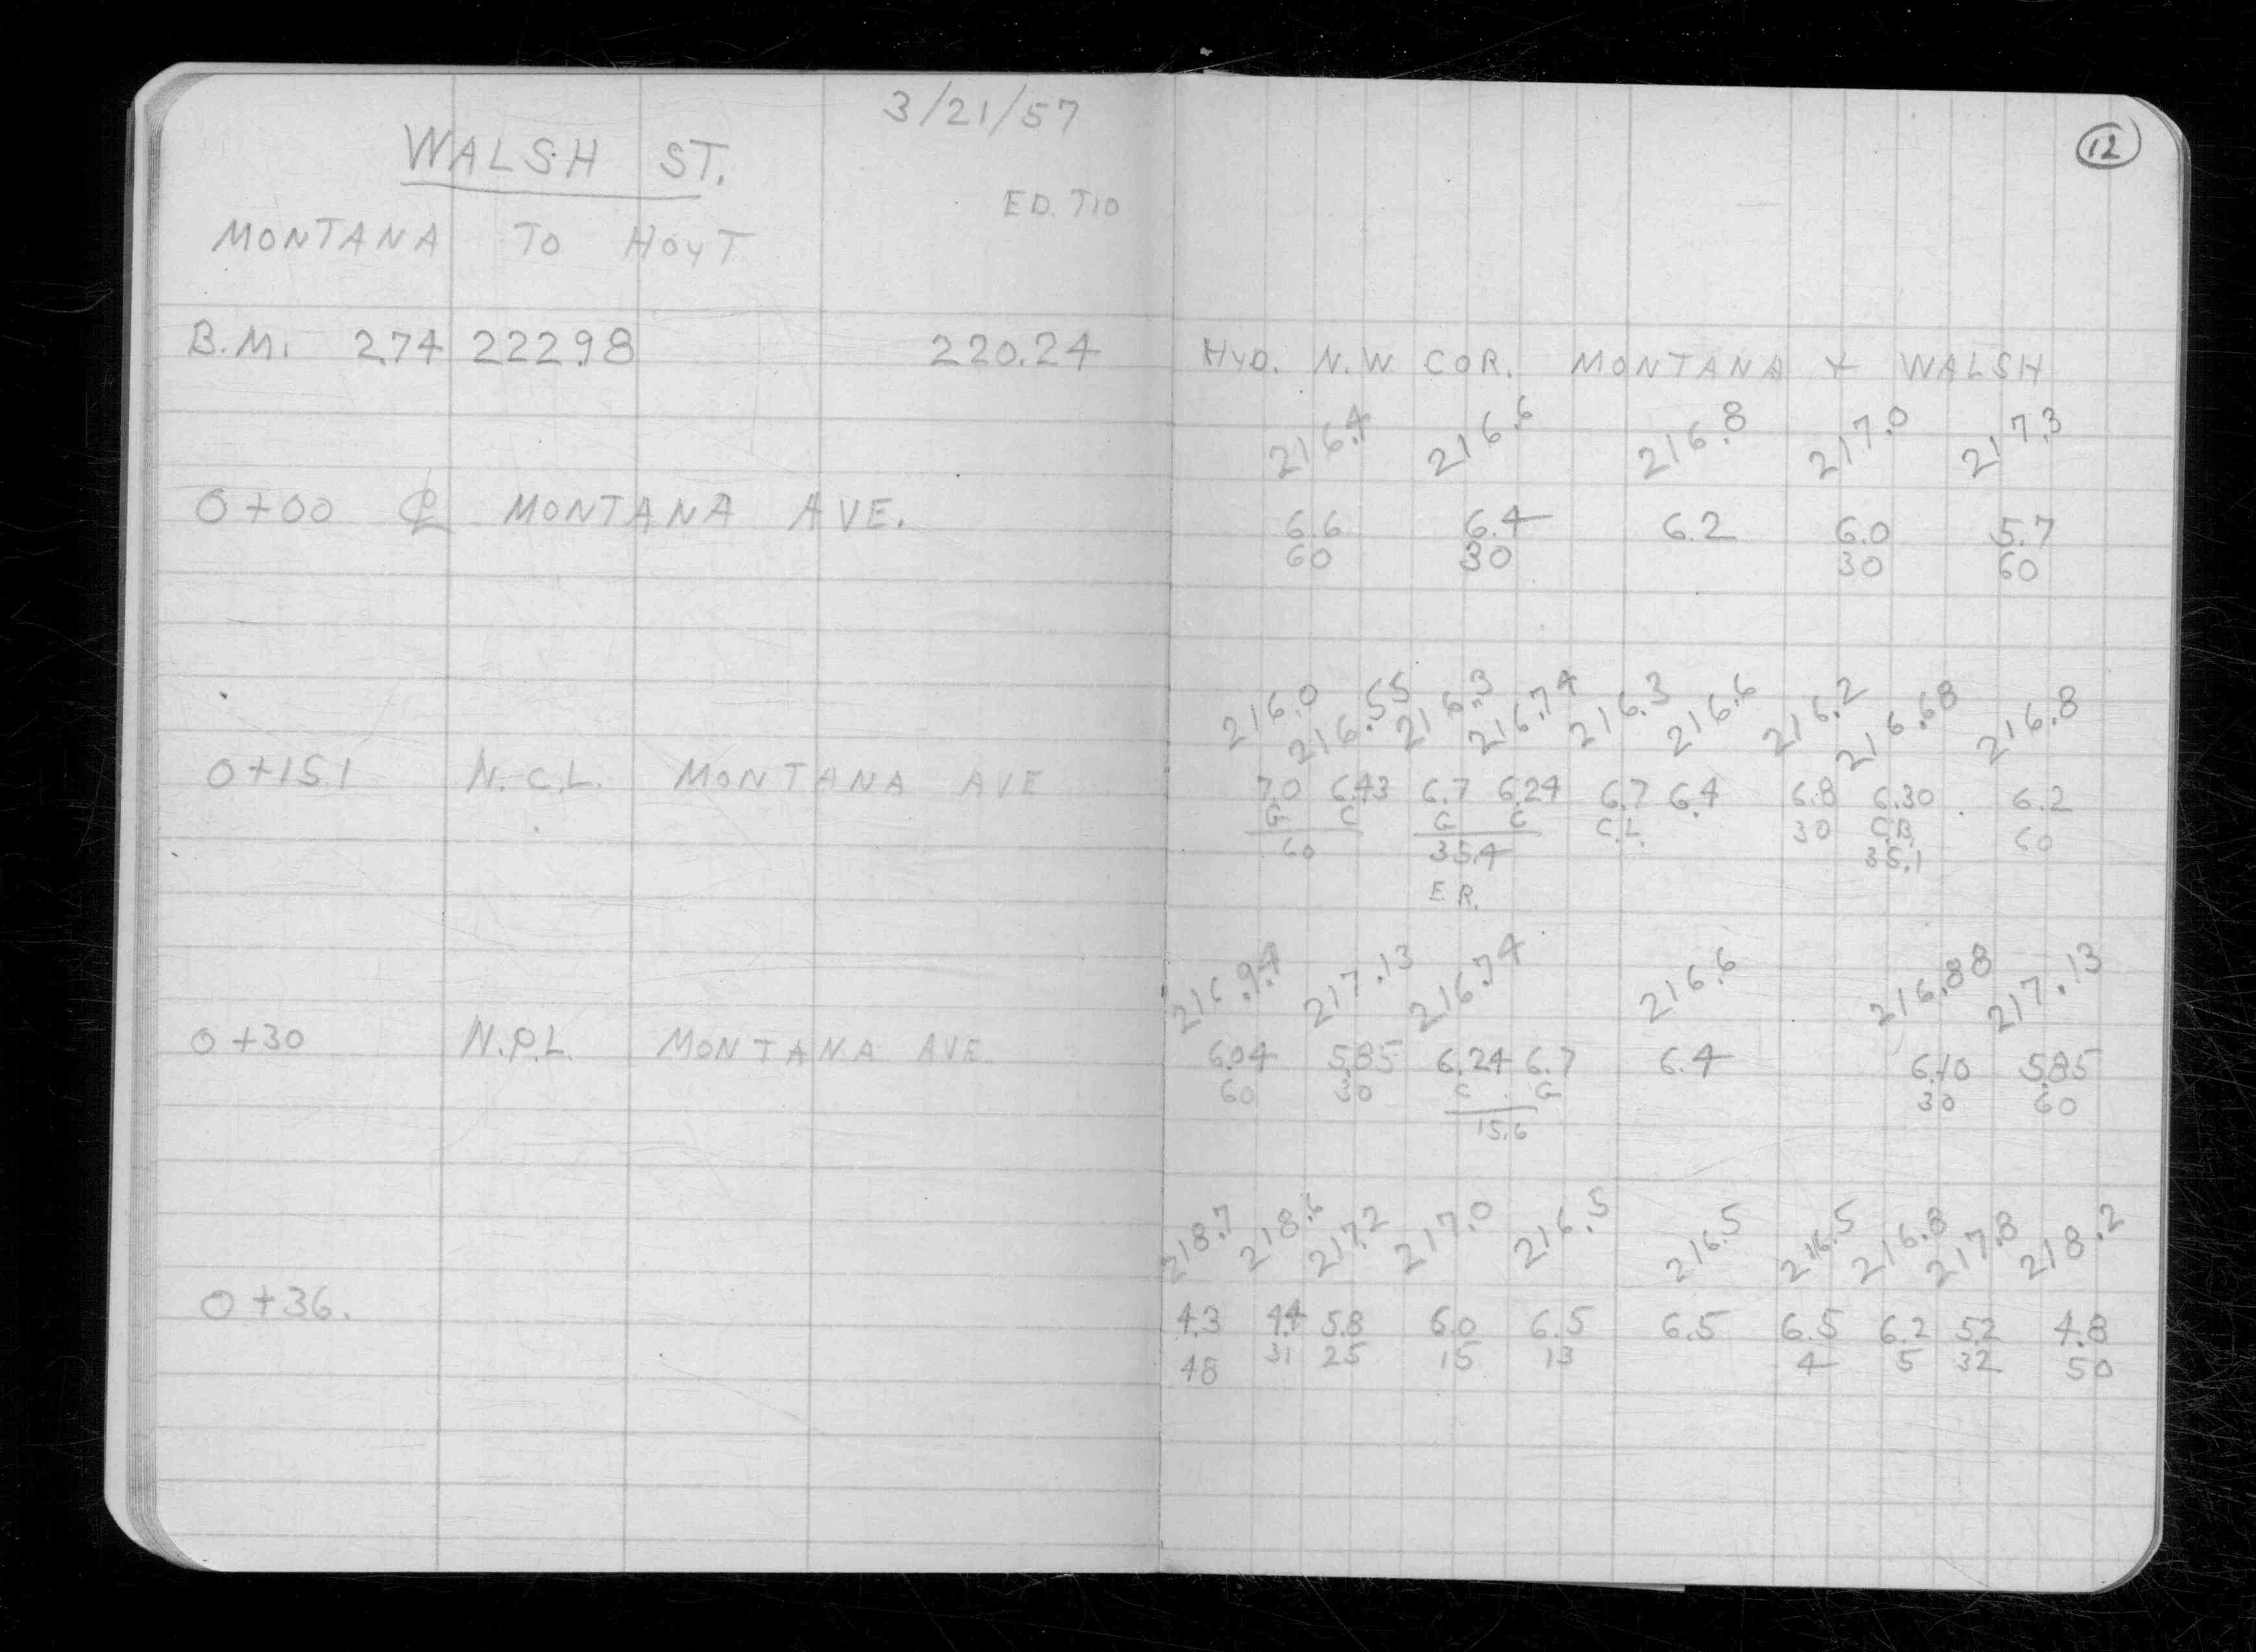 3/21/57
WALSH ST.
ED. T10
MONTANA TO HOYT
B.M. 2.74 222.98 220.24
0+00 ℄ MONTANA AVE.
0+15.1 N.C.L. MONTANA AVE
0+30 N.P.L. MONTANA AVE
0+36.
12
HYD. N.W. COR. MONTANA + WALSH
216.4 216.6 216.8 217.0 217.3
6.6 6.4 6.2 6.0 5.7
60 30 30 60
216.0 216.55 216.3 216.74 216.3 216.6 216.2 216.68 216.8
7.0 6.43 6.7 6.24 6.7 6.4 6.8 6.30 6.2
G C G C C.L. 30 C.B. 60
60 35.4 35.1
E.R.
216.94 217.13 216.74 216.6 216.88 217.13
6.04 5.85 6.24 6.7 6.4 6.10 5.85
60 30 C G 30 60
15.6
218.7 218.6 217.2 217.0 216.5 216.5 216.5 216.8 217.8 218.2
4.3 4.4 5.8 6.0 6.5 6.5 6.5 6.2 5.2 4.8
48 31 25 15 13 4 5 32 50